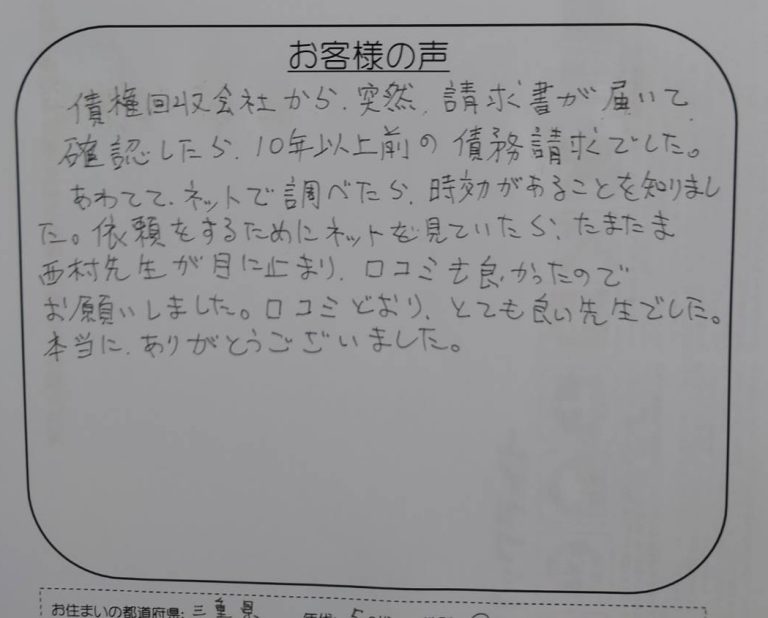 お客様の声
債権回収会社から、突然、請求書が届いて、
確認したら、10年以上前の債務請求でした。
あわてて、ネットで調べたら、時効があることを知りまし
た。依頼をするためにネットを見ていたら、たまたま
西村先生が目に止まり、口コミも良かったので
お願いしました。口コミどおり、とても良い先生でした。
本当に、ありがとうございました。
お住まいの都道府県: 三重県